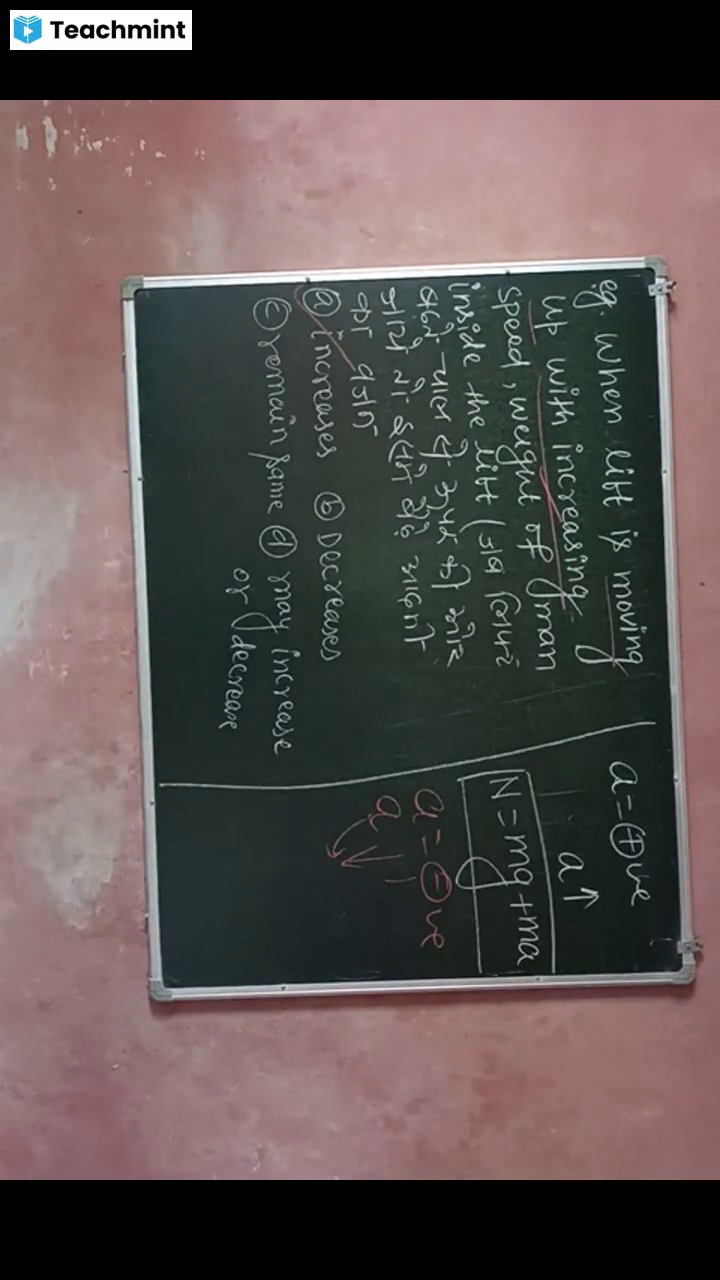 Teachmint
eg. When lift is moving
up with increasing
speed, weight of man
inside the lift (जब लिफ्ट
बढ़ते चाल से ऊपर की ओर
जाये तो इसमें खड़े आदमी
का वजन
ⓐ increases ⓑ Decreases
ⓒ remain same ⓓ may increase
or decrease
a = ⊕ve
a↑
N = mg + ma
a = ⊖ve
a